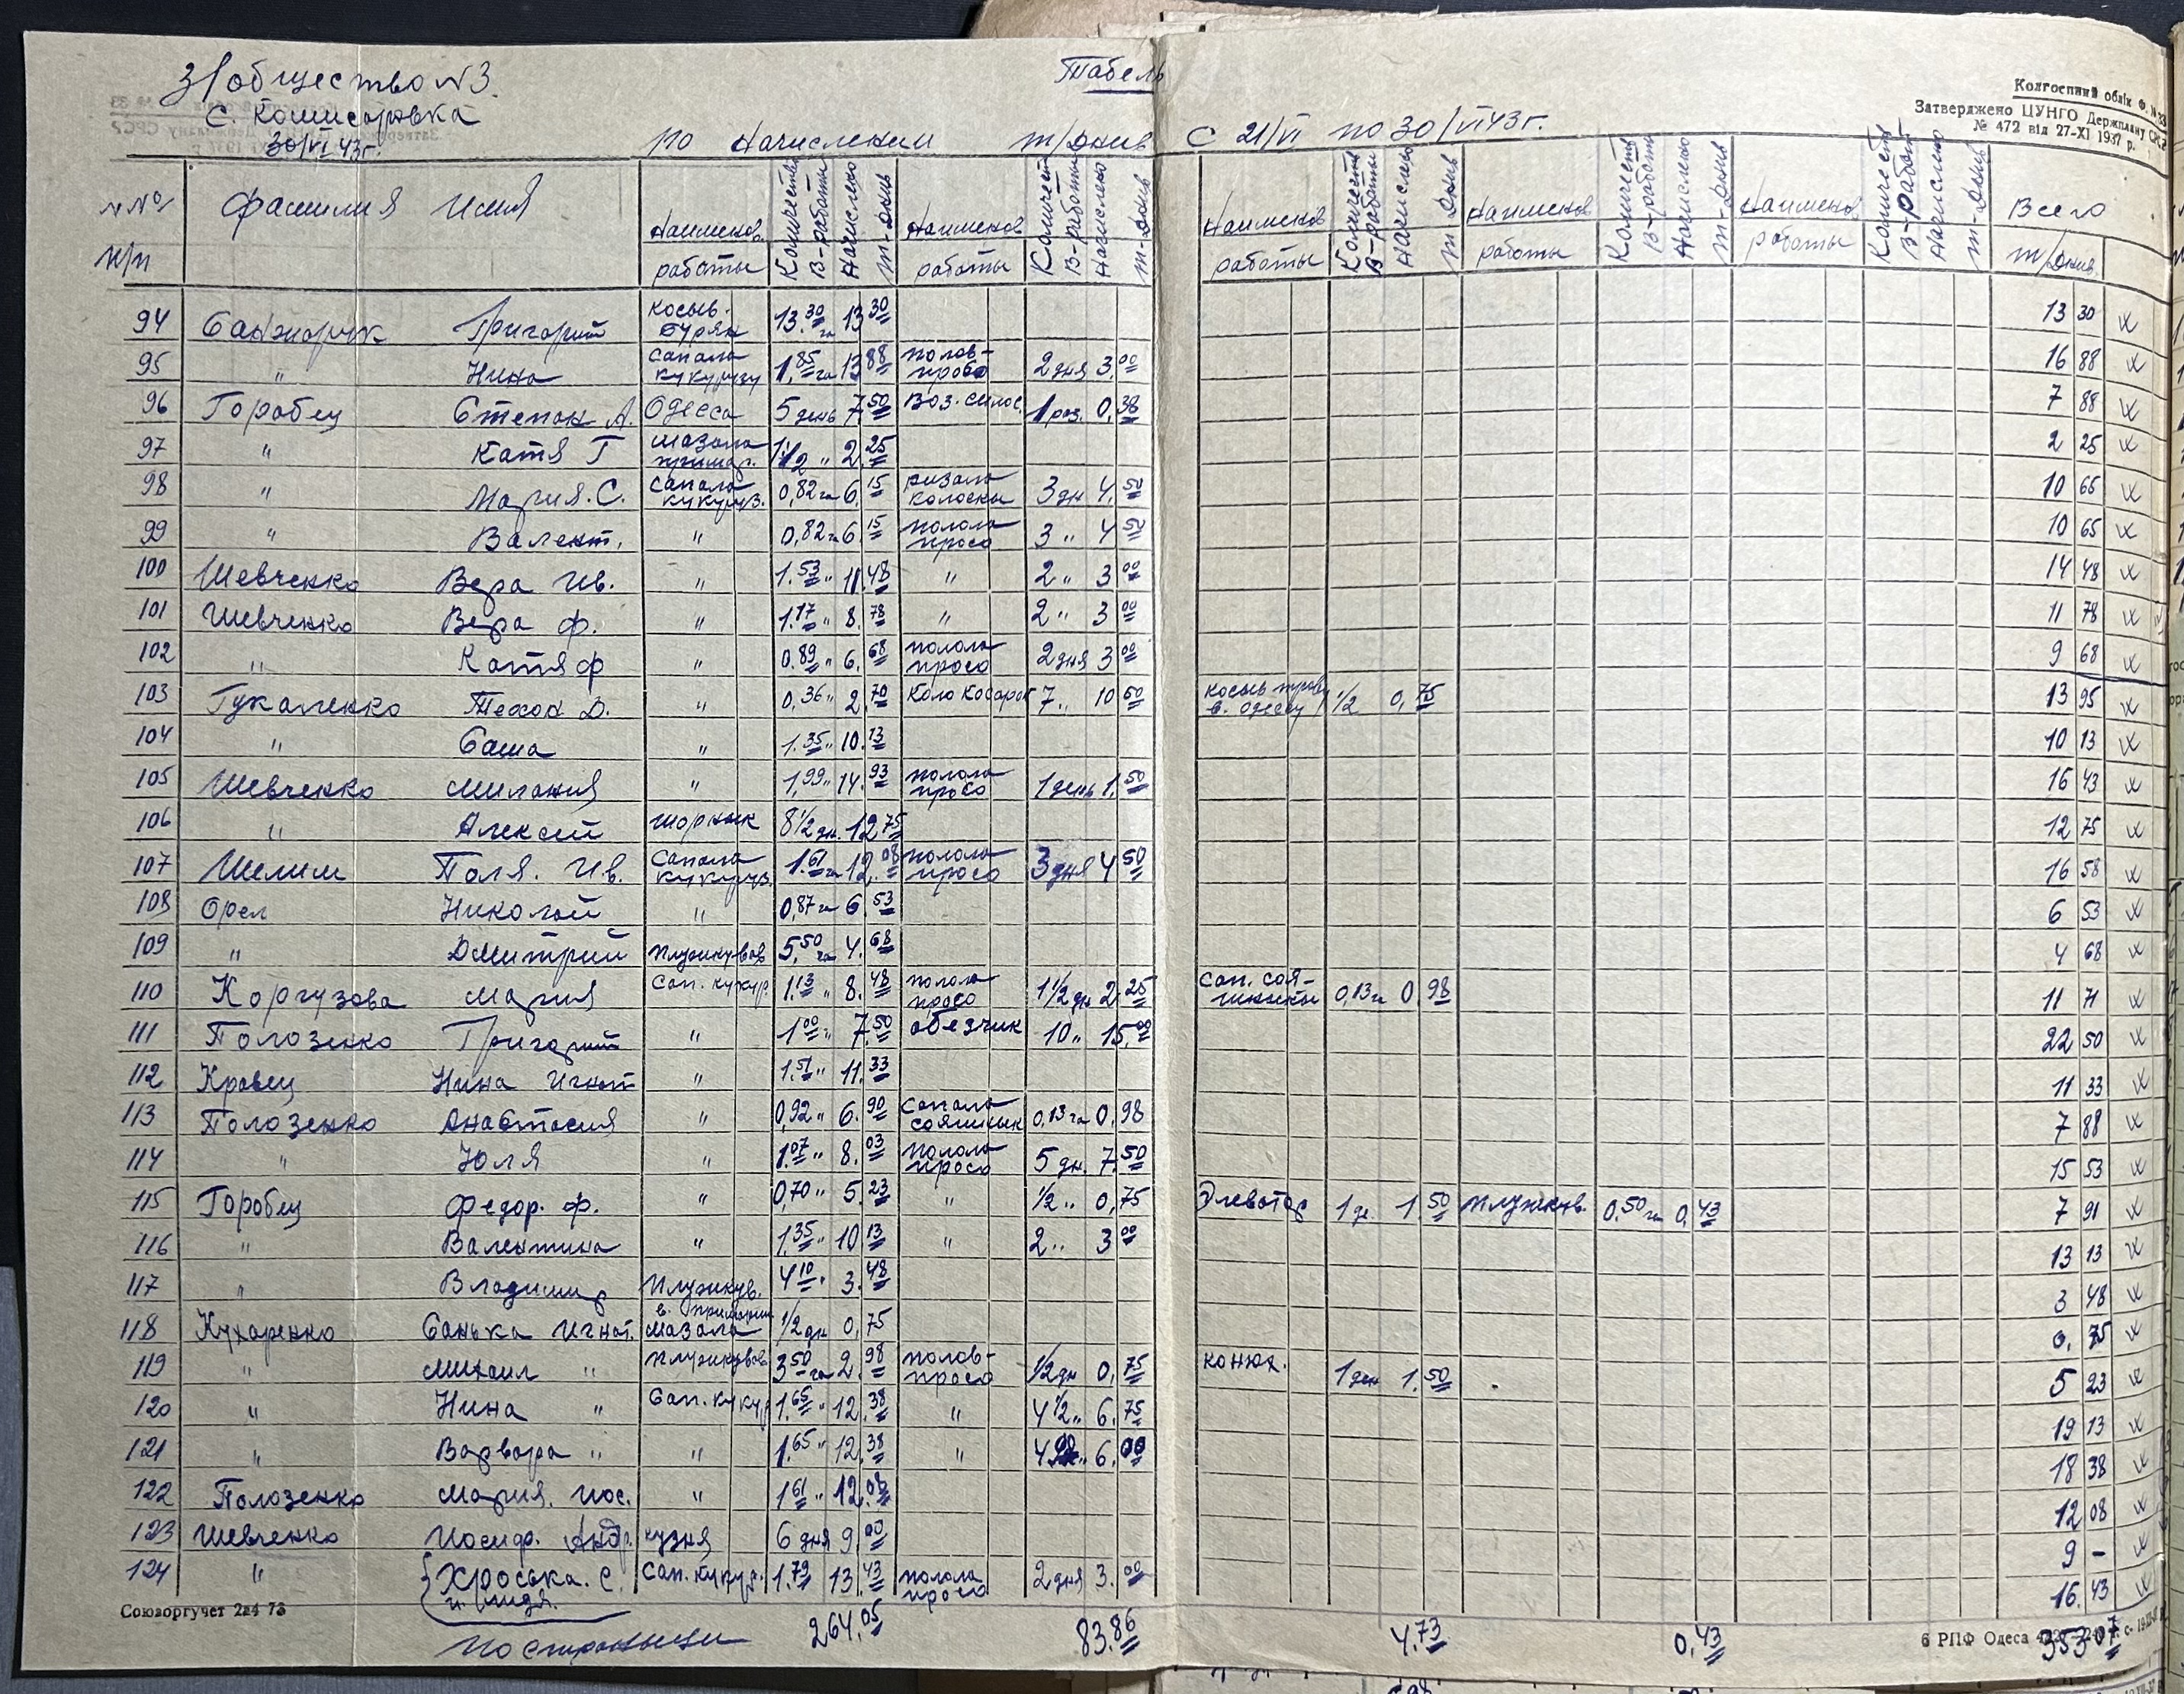 З/общество N3.
Табель
С. Комисаровка
30/VI 43г.
по начислении т/днив С 21/VI по 30/VI 43г.
Колгоспний облік Ф. № 33
Затверджено ЦУНГО Держплану СРСР
№ 472 від 27-XI 1937 р.
№№ п/п Фамилия Имя Наименов. работы Количеств. В-работы Начислено т-днив Наименов работы Количеств В-работы Начислено т-днив Наименов работы Количеств В-работы Начислено т-днив Наименов работы Количеств В-работы Начислено т-днив Наименов работы Количеств В-работ Начислено т-днив Всего т/днив
94 Григорий косыв. бурян 13.30 га 13 30 13 30
95 " Нина сапала кукурузу 1,85 га 13 88 полов- просо 2 дня 3.00 16 88
96 Горобец Степан А. Одесса 5 день 7.50 воз. силос. 1 раз. 0.38 7 88
97 " Катя Г мазала 1 1/2 " 2.25 2 25
98 " Мария. С. сапала кукуруз. 0,82 га 6.15 ризала колоски 3 дн 4.50 10 65
99 " Валент. " 0,82 га 6.15 полола просо 3 " 4 50 10 65
100 Шевченко Вера Ив. " 1.53 " 11.48 " 2 " 3 00 14 48
101 Шевченко Вера Ф. " 1.17 " 8.78 " 2 " 3 00 11 78
102 " Катя Ф " 0.89 " 6.68 полола просо 2 дня 3 00 9 68
103 Гукаленко Д. " 0,36 " 2.70 Коло косарок 7 " 10 50 косыв трав. в. Одессу 1/2 0,75 13 95
104 " Саша " 1.35 " 10.13 10 13
105 Шевченко Милания " 1,99 " 14.93 полола просо 1 день 1.50 16 43
106 " Алексей шорнык 8 1/2 дн. 12 75 12 75
107 Шелим Поля. Ив. сапала кукуруз. 1.61 га 12.08 полола просо 3 дня 4 50 16 58
108 Орел Николай " 0,87 га 6.53 6 53
109 " Дмитрий плужкував 5,50 га 4.68 4 68
110 Коргузова Мария Сап. кукур. 1.13 " 8.48 полола просо 1 1/2 дн 2.25 сап. соя- шныкы 0,13 га 0.98 11 71
111 Полозенко Григорий " 1 00 " 7.50 обезчик 10 " 15.00 22 50
112 Кравец Нина Игнат " 1.51 " 11.33 11 33
113 Полозенко Анастасия " 0,92 " 6.90 сапала сояшнык 0,13 га 0.98 7 88
114 " Юля " 1.07 " 8.03 полола просо 5 дн. 7.50 15 53
115 Горобец Федор. Ф. " 0,70 " 5.23 " 1/2 " 0,75 Элеватор 1 д. 1.50 плужкув. 0,50 га 0,43 7 91
116 " Валентина " 1.35 " 10 13 " 2 " 3 00 13 13
117 " Владимир плужкув. 4 10 " 3.48 3 48
118 Кухаренко Санька Игнат. в. мазала 1/2 дн 0.75 0.75
119 " Михаил " плужкував 3 50 га 2.98 полов- просо 1/2 дн 0,75 конюх. 1 ден 1.50 5 23
120 " Нина " Сап. кукур 1.65 " 12.38 " 4 1/2 " 6.75 19 13
121 " Варвара " " 1.65 " 12.38 " 4 " 6.00 18 38
122 Полозенко Мария. Иос. " 1 61 " 12.08 12 08
123 Шевченко Иосиф. Андр. кузня 6 дня 9.00 9 –
124 " Хроська. С. и. Лидя. Сап. кукур. 1.79 13.43 полола просо 2 дня 3.00 16.43
Союзоргучет 2а4 73
По страныци 264.05 83.86 4.73 0,43 353 07
6 РПФ Одеса